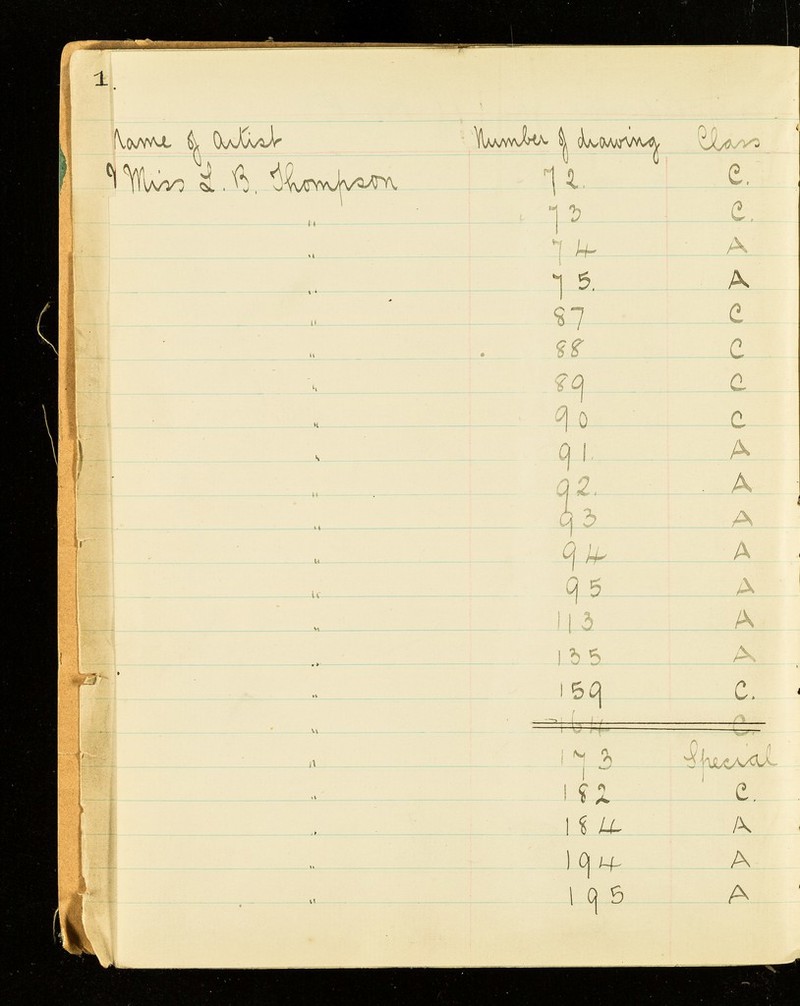 1.
Name of Artist Number of drawing Class
Miss L. B. Thompson 72. C.
" 73 C.
" 74 A
" 75. A
" 87 C
" 88 C
" 89 C
" 90 C
" 91. A
" 92. A
" 93 A
" 94 A
" 95 A
" 113 A
" 135 A
" 159 C.
" 164 C.
" 173 Special
" 182 C.
" 184 A
" 194 A
" 195 A